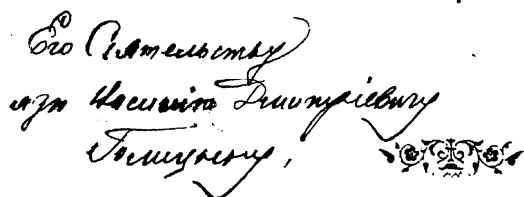 Его Сіятельству
Князю Василію Дмитріевичу
Голицыну,